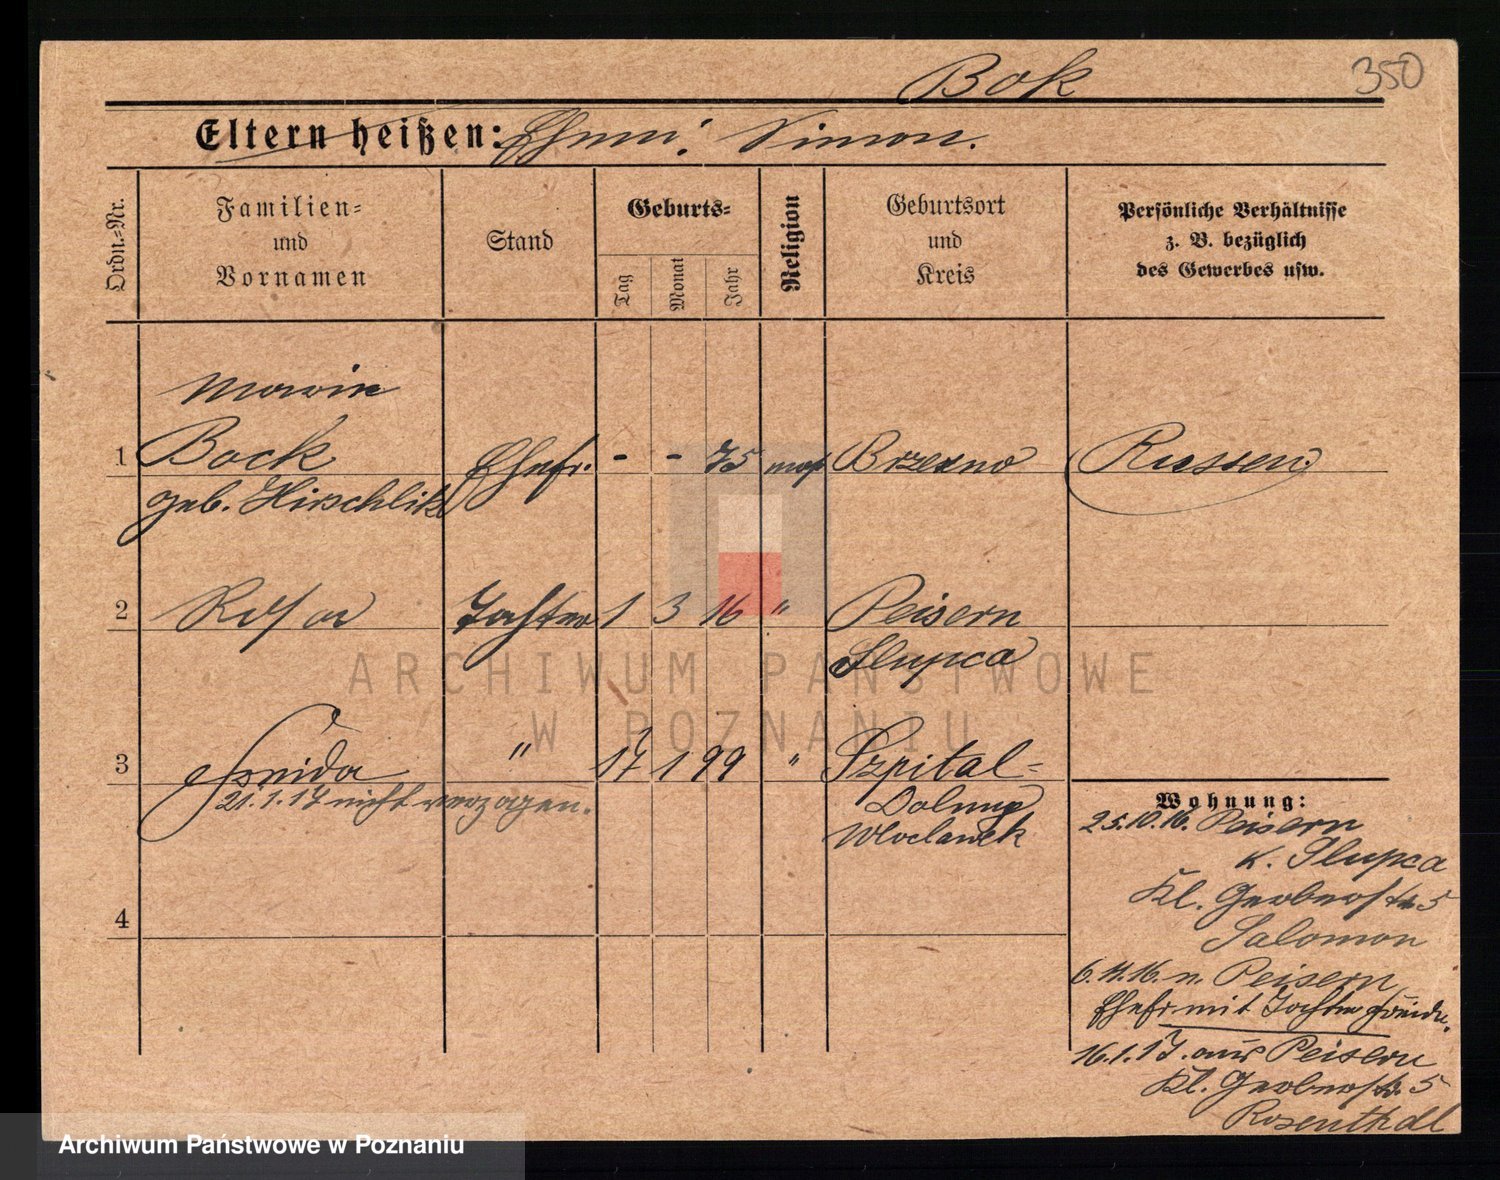 Bok
350
Eltern heißen: Ehem: Simon.
Ordn.=Nr.
Familien=
und
Vornamen
Stand
Geburts=
Tag
Monat
Jahr
Religion
Geburtsort
und
Kreis
Persönliche Verhältnisse
z. B. bezüglich
des Gewerbes usw.
Marie
1 Bock Ehefr. - - 75 mos. Brzezno Russen
geb. Hirschlik
2 Rosa Tochter 1 3 16 " Peisern
Slupca
3 Freida " 17 1 99 " Szpital-
21.1.17 nicht verzogen.
Wloclawek
4
Wohnung:
25.10.16. Peisern
K. Slupca
Kl. Gerberstr 5
Salomon
6.11.16. n. Peisern
Ehefr mit Tochter Freida.
16.1.17. aus Peisern
Kl. Gerberstr. 5
Rosenthal
ARCHIWUM PAŃSTWOWE
W POZNANIU
Archiwum Państwowe w Poznaniu